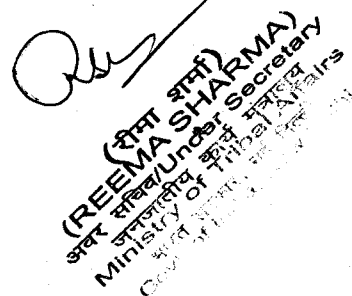 (रीमा शर्मा)
(REEMA SHARMA)
अवर सचिव/Under Secretary
जनजातीय कार्य मंत्रालय
Ministry of Tribal Affairs
भारत